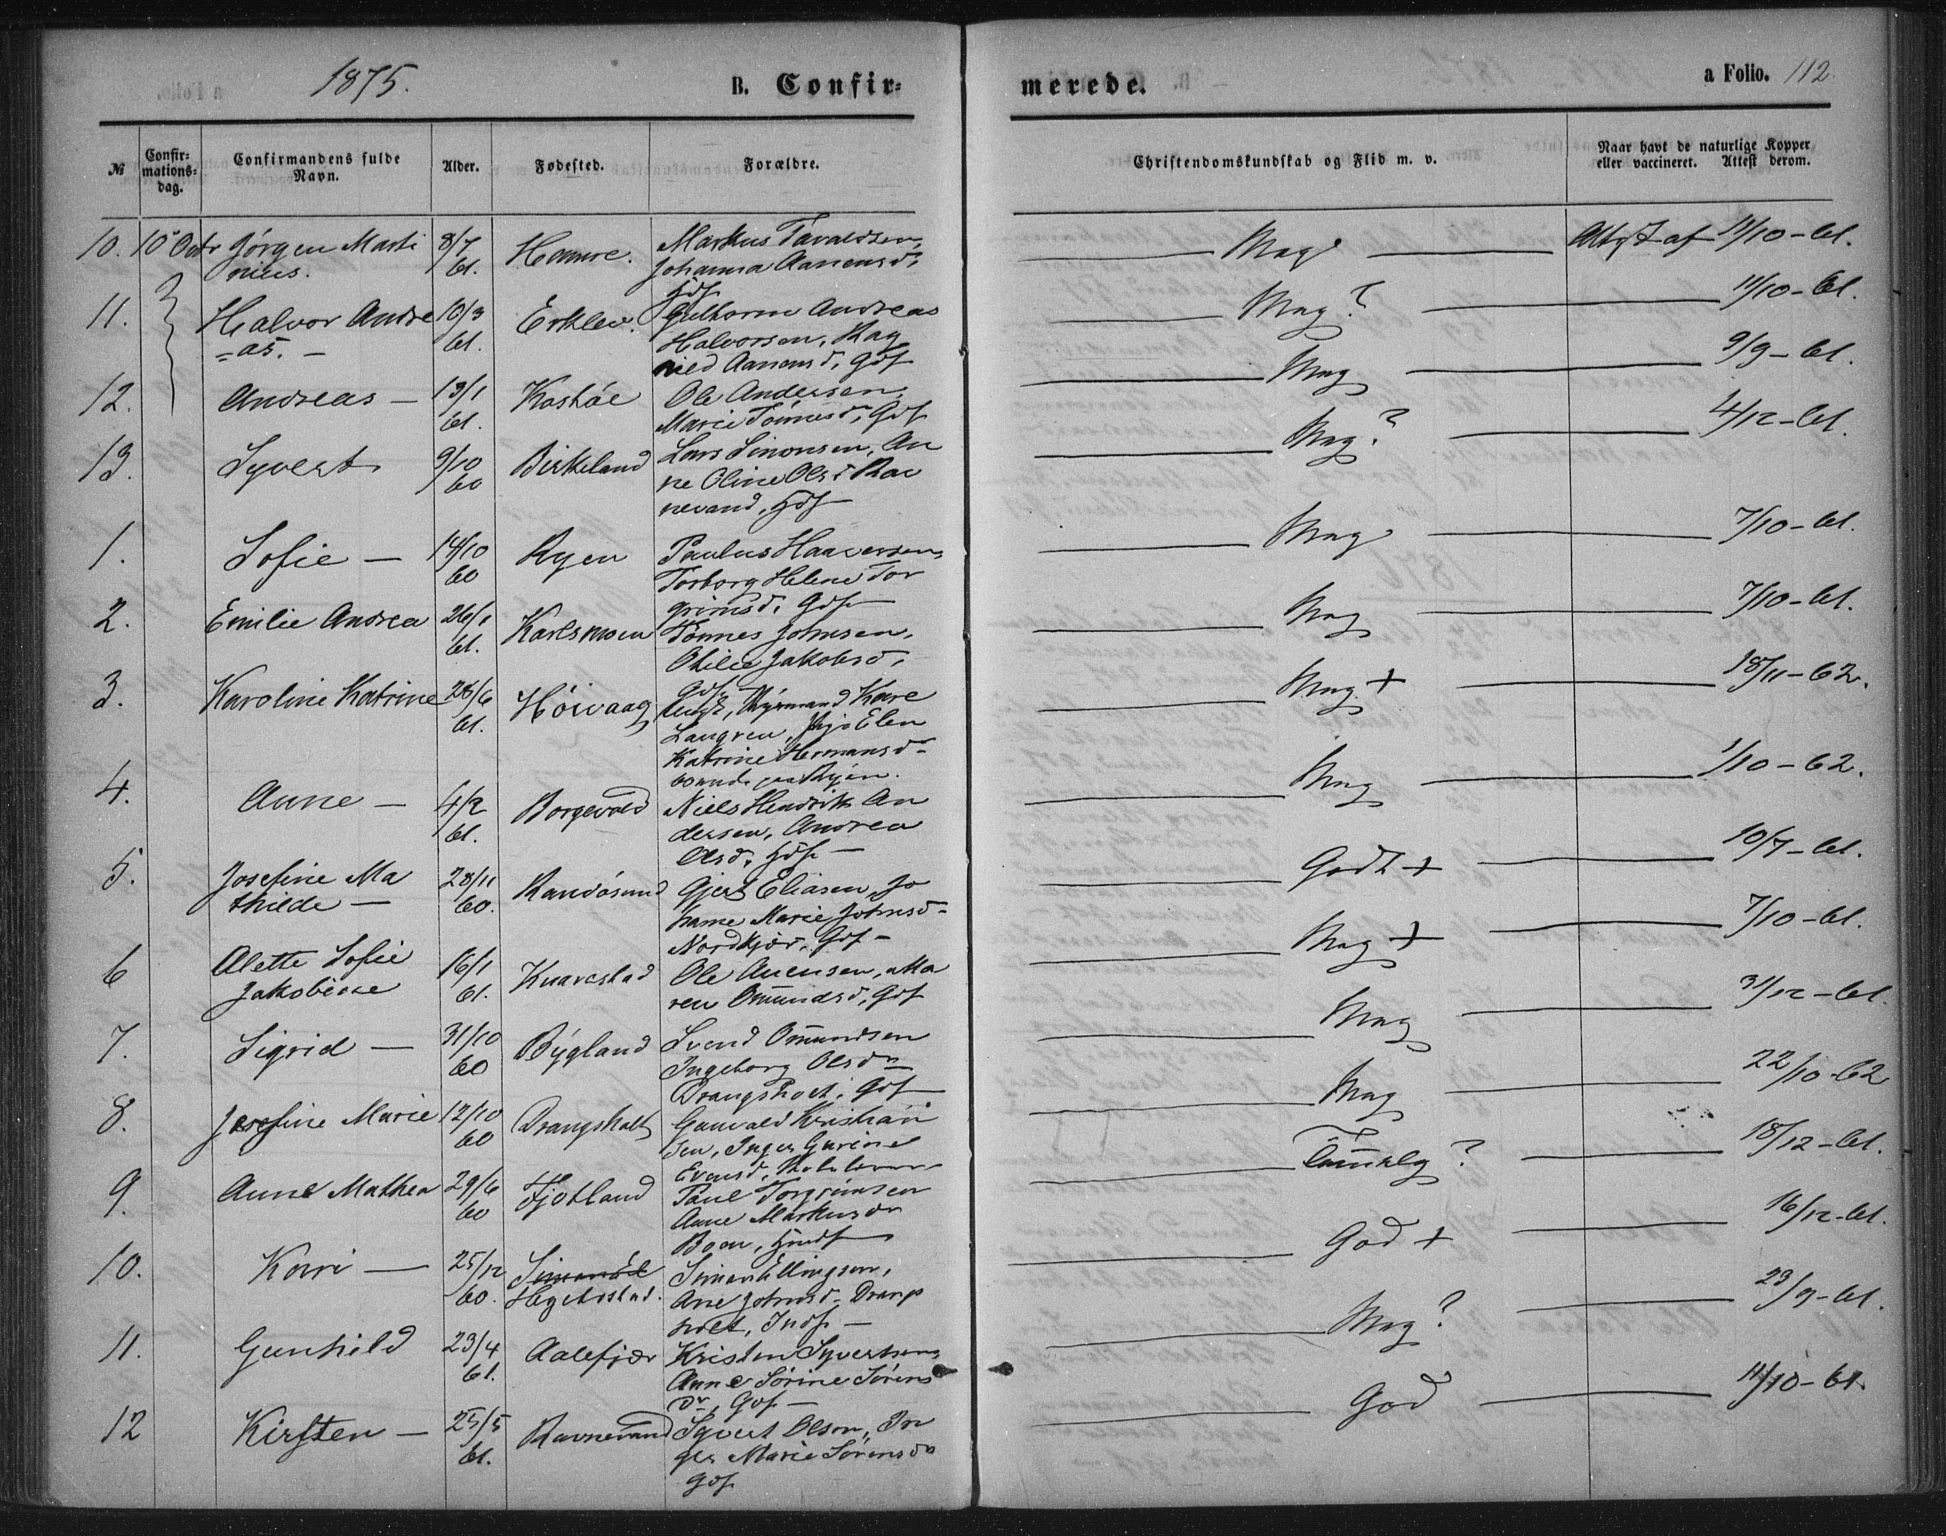 1875.
B. Confir=
merede.
a Folio. 112.
№
Confir=
mations=
dag.
Confirmandens fulde
Navn.
Alder.
Fødested.
Forældre.
Christendomskundskab og Flid m. v.
Naar havt de naturlige Kopper
eller vaccineret. Attest derom.
10. 10 Octr Jørgen Marti
nius.
8/7
61.
Homre.
Markus Tavaldsen,
Johanna Aanensd,
Hdf
Mag
Attest af 11/10-61.
11.
Halvor Andre
=as. -
10/3
61.
Erklev.
Guttorm Andreas
Halvorsen, Rag
nild Aanensd, Gdf
Mag?
11/10-61.
12.
Andreas -
13/1
61.
Kostøe
Ole Andersen,
Marie Tønnesd, Gdf
Mag
9/9-61.
13.
Syvert
9/10
60
Birkeland
Lars Simonsen, An
ne Oline Olsd Rav
nevand, Hdf
Mag?
4/12-61.
1.
Sofie -
14/10
60
Ryen
Paulus Haaversen,
Torborg Helene Tor
grimsd, Gdf
Mag
7/10-61.
2.
Emilie Andrea
26/1
61.
Karlsmoen
Tønnes Johnsen,
Otilie Jakobsd,
Gdf
Mag
7/10-61.
3.
Karoline Katrine
28/6
61.
Høivaag
Kaare
Langren, Elen
Katrine Hermansd
boende paa Ryen.
Mag +
18/11-62.
4.
Anne -
4/2
61.
Borgevold
Niels Hendrik An
dersen, Andrea
Olsd, Hdf -
Mag
1/10-62.
5.
Josefine Ma
thilde -
28/11
60.
Randøsund
Gjert Eliasen, Jo
hanne Marie Johnsd
Nordkjær, Gdf -
Godt +
10/7-61.
6
Alette Sofie
Jakobine
16/1
61.
Knarestad
Ole Auensen, Ma
ren Omundsd, Gdf
Mag +
7/10-61.
7.
Sigrid -
31/10
60
Bygland
Svend Omundsen
Ingeborg Olsdr
Drangsholt, Gdf
Mag
31/12-61.
8.
Josefine Marie
12/10
60
Drangsholt
Gunvald Kristian
sen, Inger Gurine
Evensd,
Mag
22/10-62
9.
Anne Mathea
29/6
60
Fjotland
Tarel Torgrimsen
Anne Markusdr
Boen, Hmdf
Taumelig?
18/12-61.
10.
Kari -
25/12
60.
Hegebostad.
Simon Ellingsen,
Ane Johnsd. Drangs
holt, Indf -
God +
16/12-61.
11.
Gunhild
23/4
61.
Aalefjær
Kristen Syvertsen,
Anne Sørine Sørens
dr, Gdf -
Mag?
23/9-61.
12
Kirsten -
25/5
61.
Ravnevand
Syvert Olsen, In
ger Marie Sørensdr
Gdf
God
11/10-61.